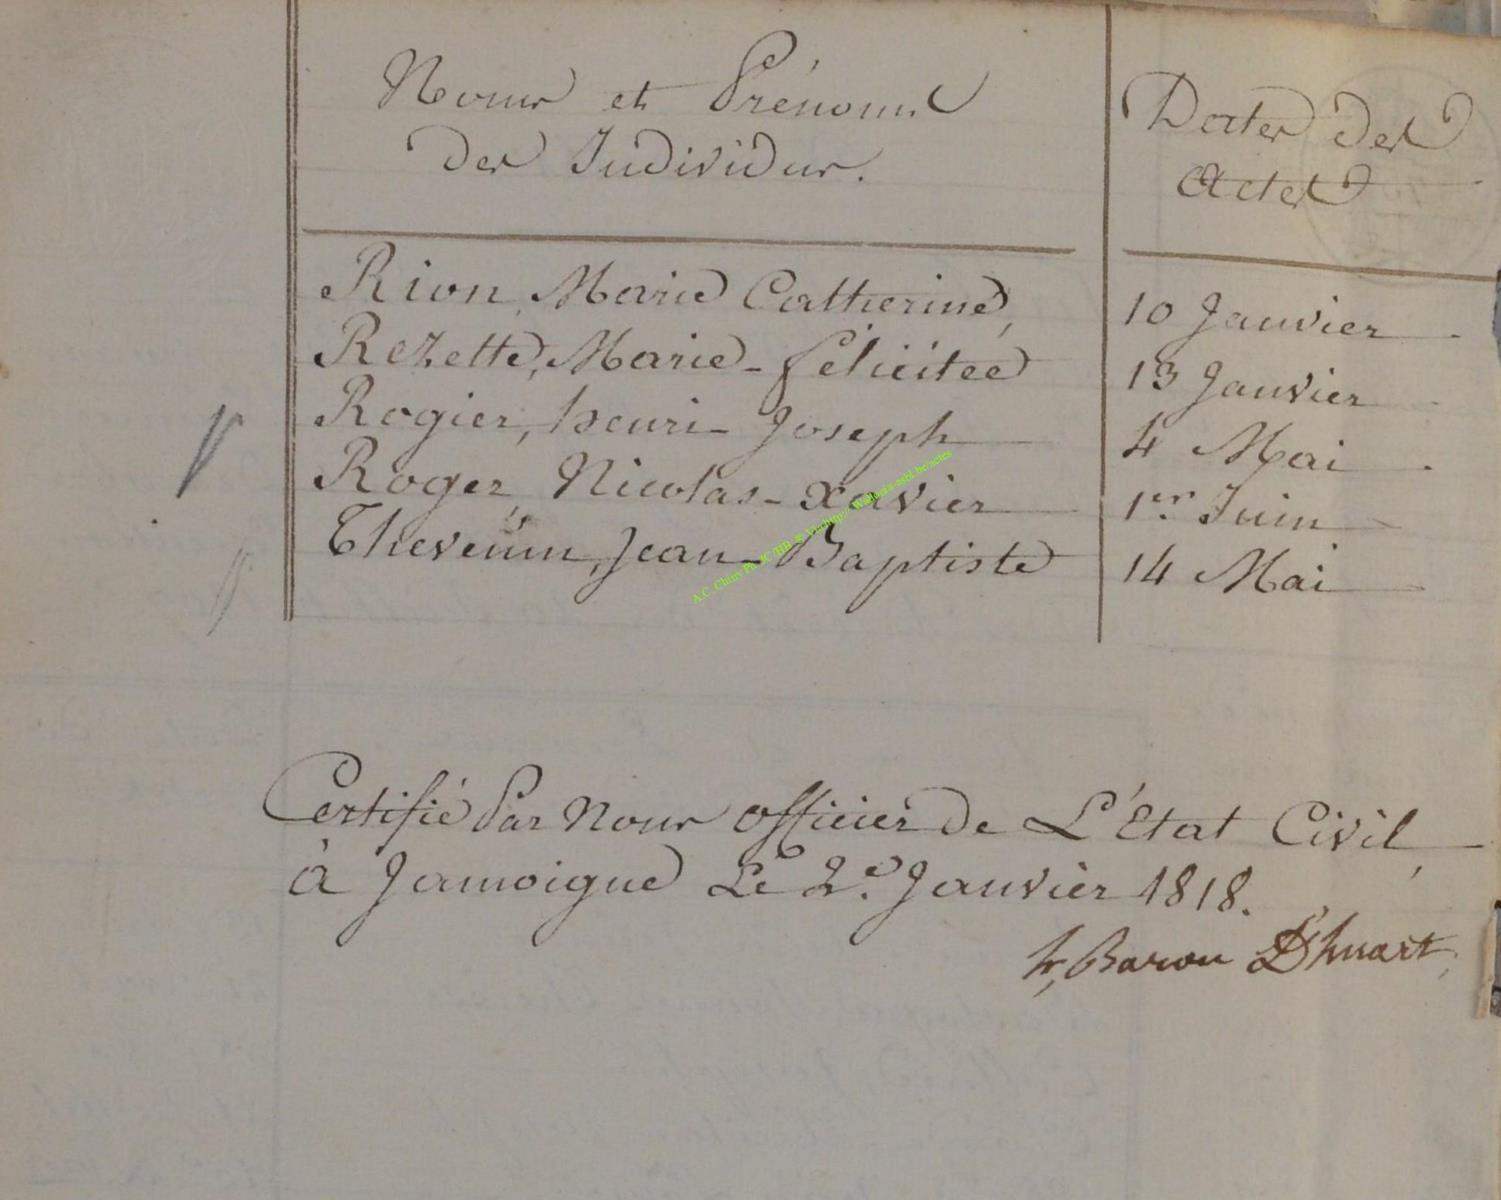 Noms et Prénoms
des Individus.
Dates des
Actes
Rion, Marie Catherine, 10 Janvier
Rezette, Marie-félicitée 13 Janvier
Rogier, henri-Joseph 4 Mai
Roger, Nicolas-xavier 1er Juin
Thevenin, Jean-Baptiste 14 Mai
Certifié Par Nous officier de L'Etat Civil,
à Jamoigne Le 2e. Janvier 1818.
h, Baron D'huart,